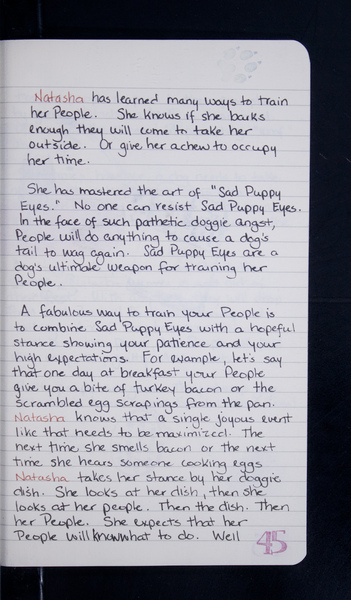 Natasha has learned many ways to train
her People. She knows if she barks
enough they will come to take her
outside. Or give her a chew to occupy
her time.
She has mastered the art of "Sad Puppy
Eyes." No one can resist Sad Puppy Eyes.
In the face of such pathetic doggie angst,
People will do anything to cause a dog's
tail to wag again. Sad Puppy Eyes are a
dog's ultimate weapon for training her
People.
A fabulous way to train your People is
to combine Sad Puppy Eyes with a hopeful
stance showing your patience and your
high expectations. For example, let's say
that one day at breakfast your People
give you a bite of turkey bacon or the
scrambled egg scrapings from the pan.
Natasha knows that a single joyous event
like that needs to be maximized. The
next time she smells bacon or the next
time she hears someone cooking eggs
Natasha takes her stance by her doggie
dish. She looks at her dish, then she
looks at her people. Then the dish. Then
her People. She expects that her
People will know what to do. Well
45